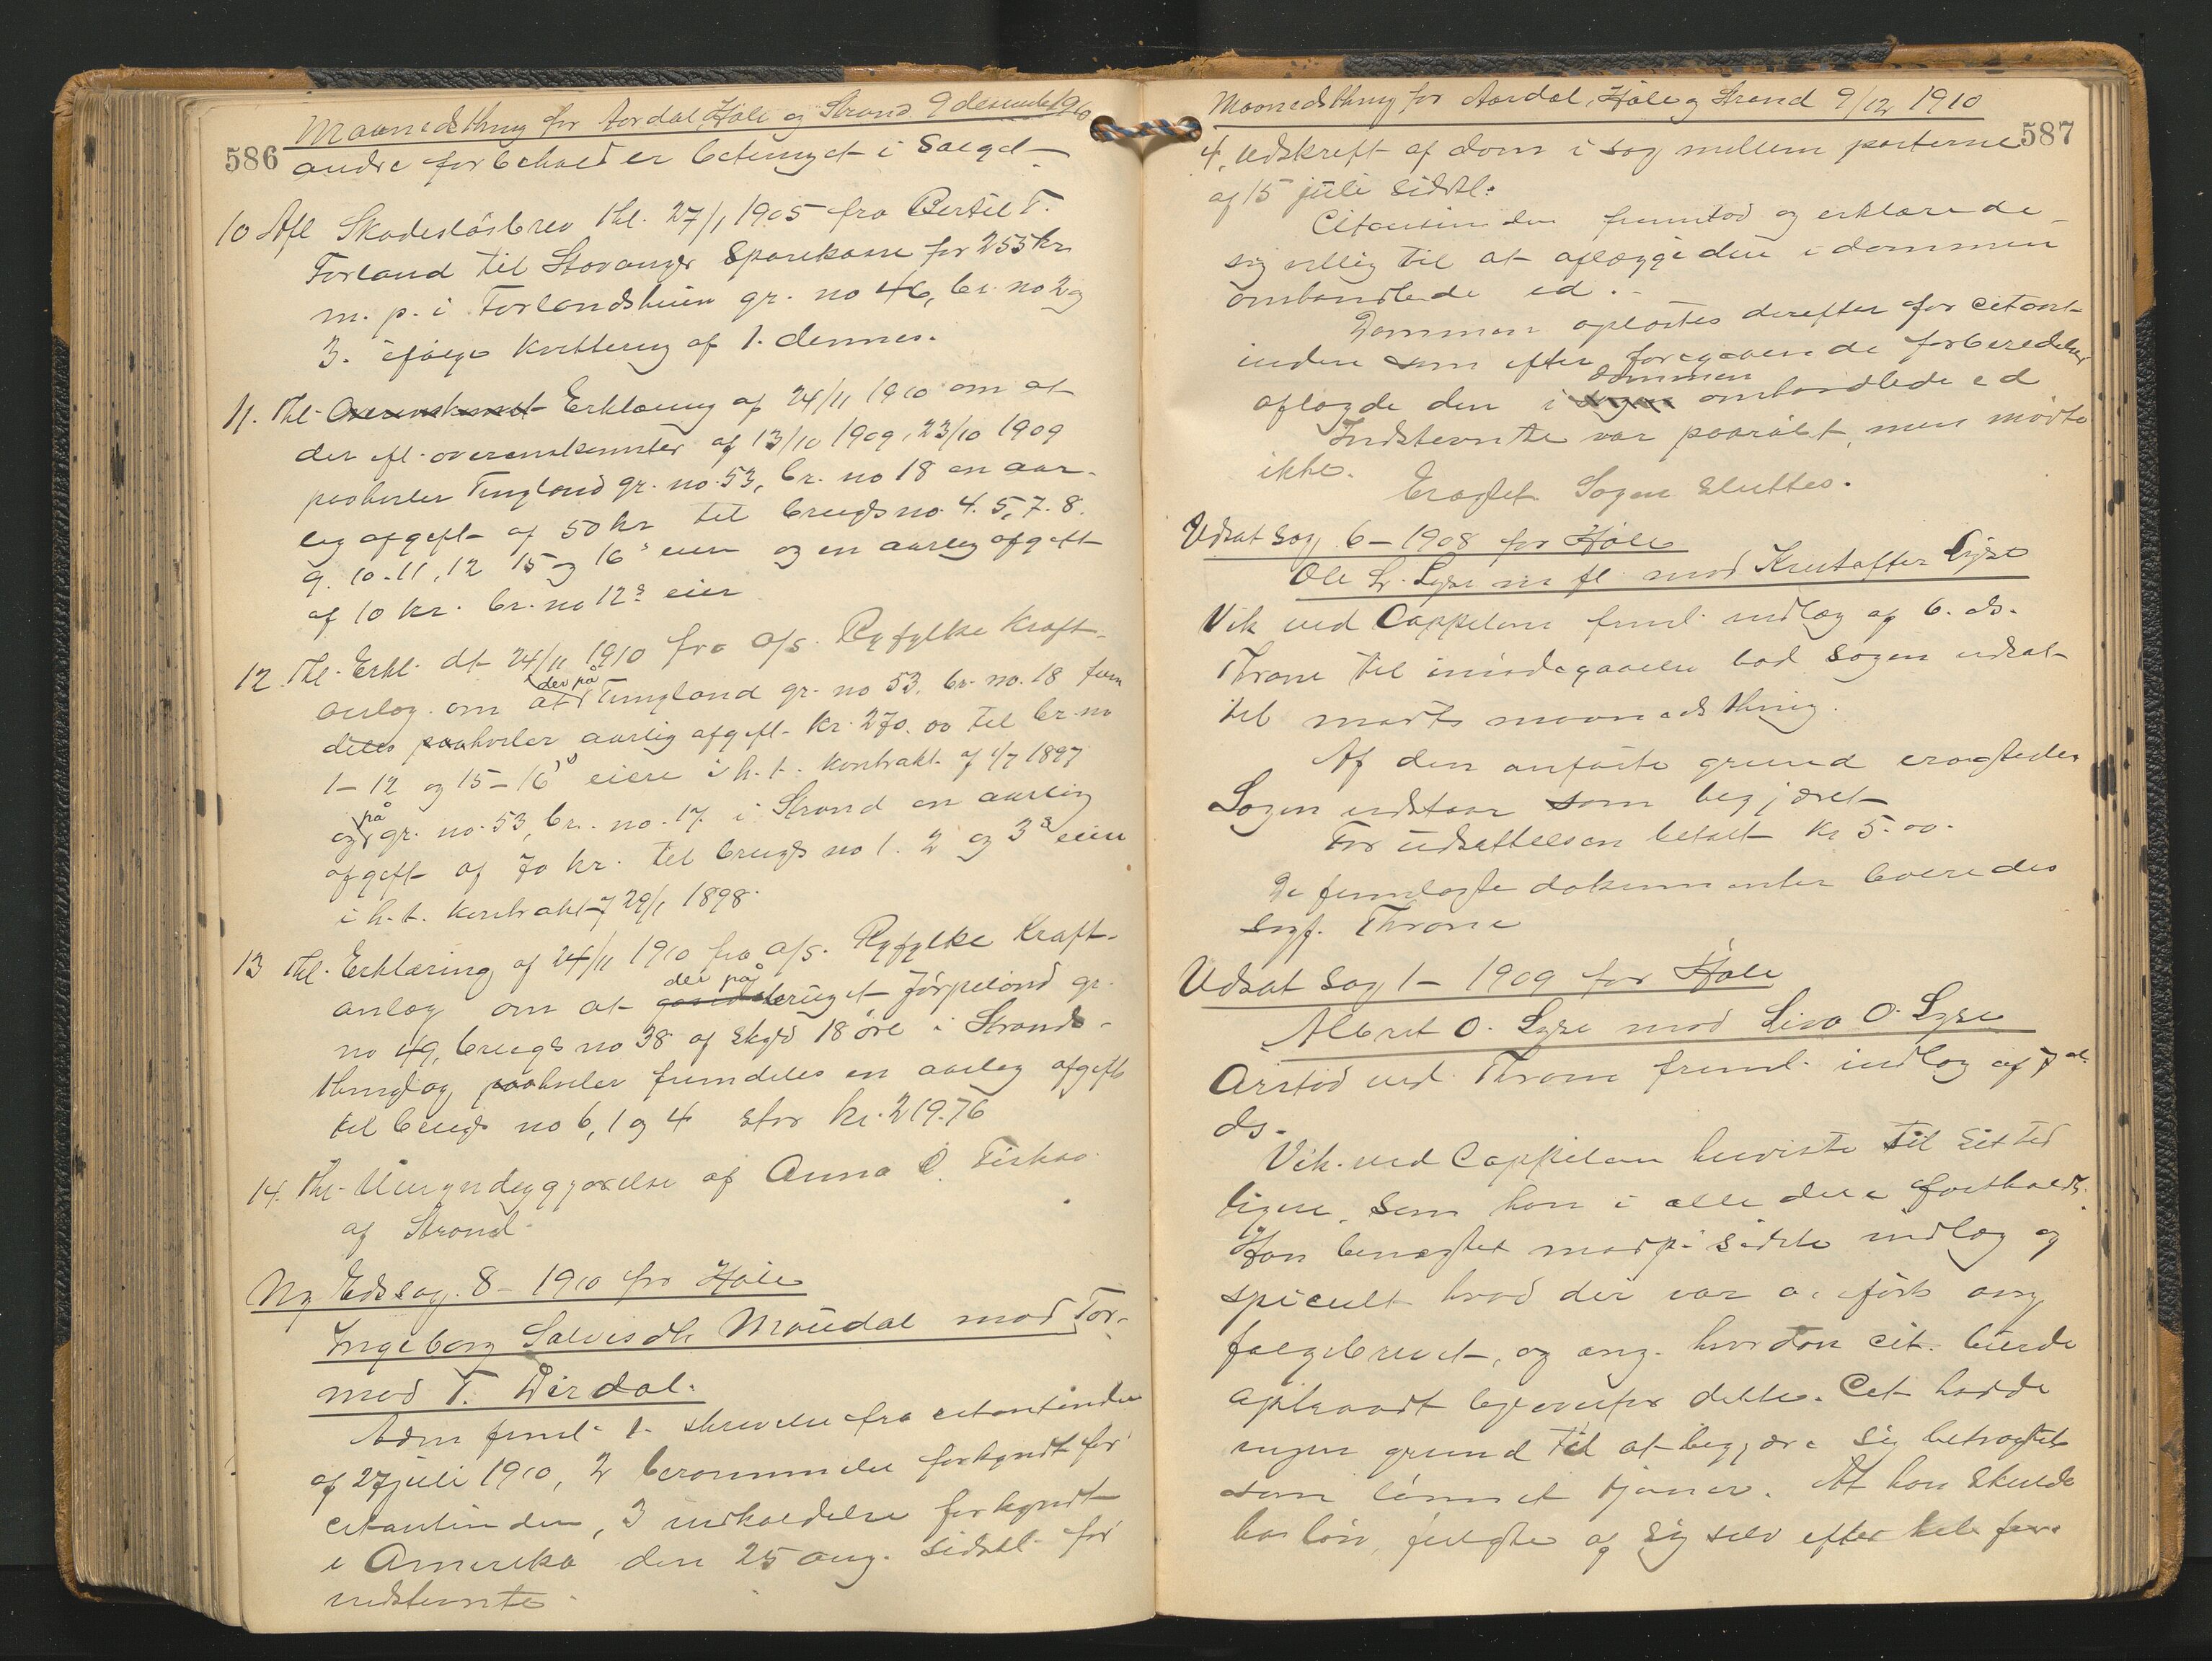 Maanedsthing for Aardal, Høle og Strand 9 desember 1910
586
andre forbehold er betinget i Salget
10 Afl Skadesløsbrev thl. 27/1 1905 fra Bertil T.
Forland til Stavanger Sparekasse for 255 kr
m. p. i Forlandsheien gr. no 46, br. no 2 og
3. ifølge kvittering af 1. dennes.
11. Thl. Overenskomst Erklæring af 24/11 1910 om at
der ifl. overenskomster af 13/10 1909, 23/10 1909
paahviler Tungland gr. no. 53, br. no 18 en aar-
lig afgift af 50 kr til brugsno. 4. 5, 7. 8.
9. 10. 11, 12 15 og 16s eier og en aarlig afgift
af 10 kr. br. no 12s eier
12. Thl. Erkl. dt 24/11 1910 fra A/S. Ryfylke Kraft-
anlæg om at der på Tungland gr. no 53, br. no. 18 frem
deles paahviler aarlig afgift kr. 270.00 til br. no
1-12 og 15-16s eiere i h. t. kontrakt af 1/7 1897
og på gr. no. 53, br. no. 17 i Strand en aarlig
afgift af 70 kr. til brugs no 1. 2 og 3s eier
i h. t. kontrakt af 29/1 1898.
13 Thl. Erklæring af 24/11 1910 fra A/S. Ryfylke Kraft-
anlæg om at der på bruget Jørpeland gr.
no 49, brugs no 38 af skyld 18 øre i Strands-
thinglag paahviler fremdeles en aarlig afgift
til brugs no 6, 1 og 4 stor kr. 219.76
14. Thl. Umyndiggjørelse af Anna O.
af Strand
Ny Edssag. 8 - 1910 for Høle
Ingeborg Salvesdtr. Møudal mod Tor-
mod T. Dirdal.
Adm freml. 1. skrivelse fra citantinden
af 27 juli 1910, 2 berammelse forkyndt for
citantinden, 3 indkaldelse forkyndt
i Amerika den 25 aug. sidstl. for
indstevnte
Maanedsthing for Aardal, Høle og Strand 9/12 1910
587
4. udskrift af dom i sag mellem parterne
af 15 juli sidstl.
Citantinden fremstod og erklærede
sig villig til at aflægge den i dommen
omhandlede ed.
Dommen oplæstes derefter for citant-
inden som efter foregaaende forberedelse
aflagde den i dommen omhandlede ed
Indstevnte var paaråbt, men mødte
ikke.
Eragtet Sagen sluttes.
Udsat sag 6 - 1908 for Høle
Ole L. Lyse m fl mod Kristoffer Lyse
Vik ved Cappelen freml. indlæg af 6. ds.
Throne til imødegaaelse bad sagen udsat
til marts maanedsthing.
Af den anførte grund eragtedes
Sagen udstaar som begjæret
For udsættelsen betalt kr 5.00.
De fremlagte dokumenter leveredes
sagf. Throne
Udsat sag 1 - 1909 for Høle
Albret O. Lyse mod Siva O. Lyse
Aarstad ved Throne freml. indlæg af 7de
ds.
Vik. ved Cappelen henviste til sit tid
ligere, som han i alle dele fastholdt.
Han benægtet modp. sidste indlæg og
specielt hvad der var anført ang
følgebrevet, og ang. hvordan cit. burde
optraadt ligeoverfor dette. Cit. havde
ingen grund til at begjære sig betragtet
som lønnet tjener. At han skulde
ha løn, fulgte af sig selv efter hele for-